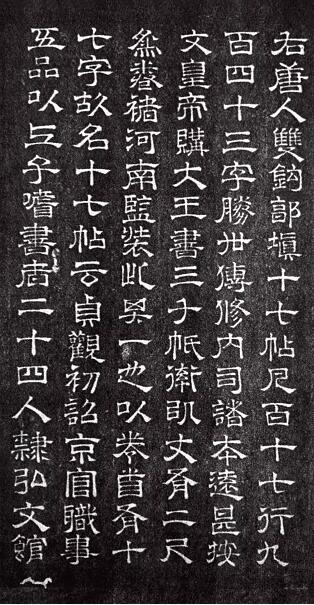 右唐人雙鈎郭填十七帖凡百十七行九
百四十三字勝世傳修内司諸本遠甚按
文皇帝購大王書三千帋率以丈有二尺
為卷褚河南監裝此其一也以卷首有十
七字故名十七帖云貞觀初詔京官職事
五品以上子嗜書者二十四人隸弘文館〻